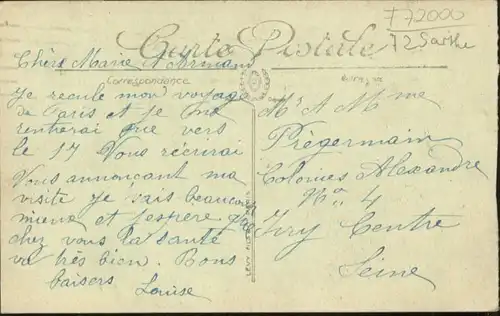 F72000
72 Sarthe
Carte Postale
Chère Marie Armand
Correspondance
Je recule mon voyage
de Paris et je
rentrerai que vers
le 17 Vous récrirai
Vous annonçant ma
visite je sais beaucoup
mieux et j'espère que
chez vous la santé
va très bien. Bons
baisers Louise
Mr & Mme
Prégermain
Colonies Alexandre
No 4
Ivry Centre
Seine
LEVY FILS